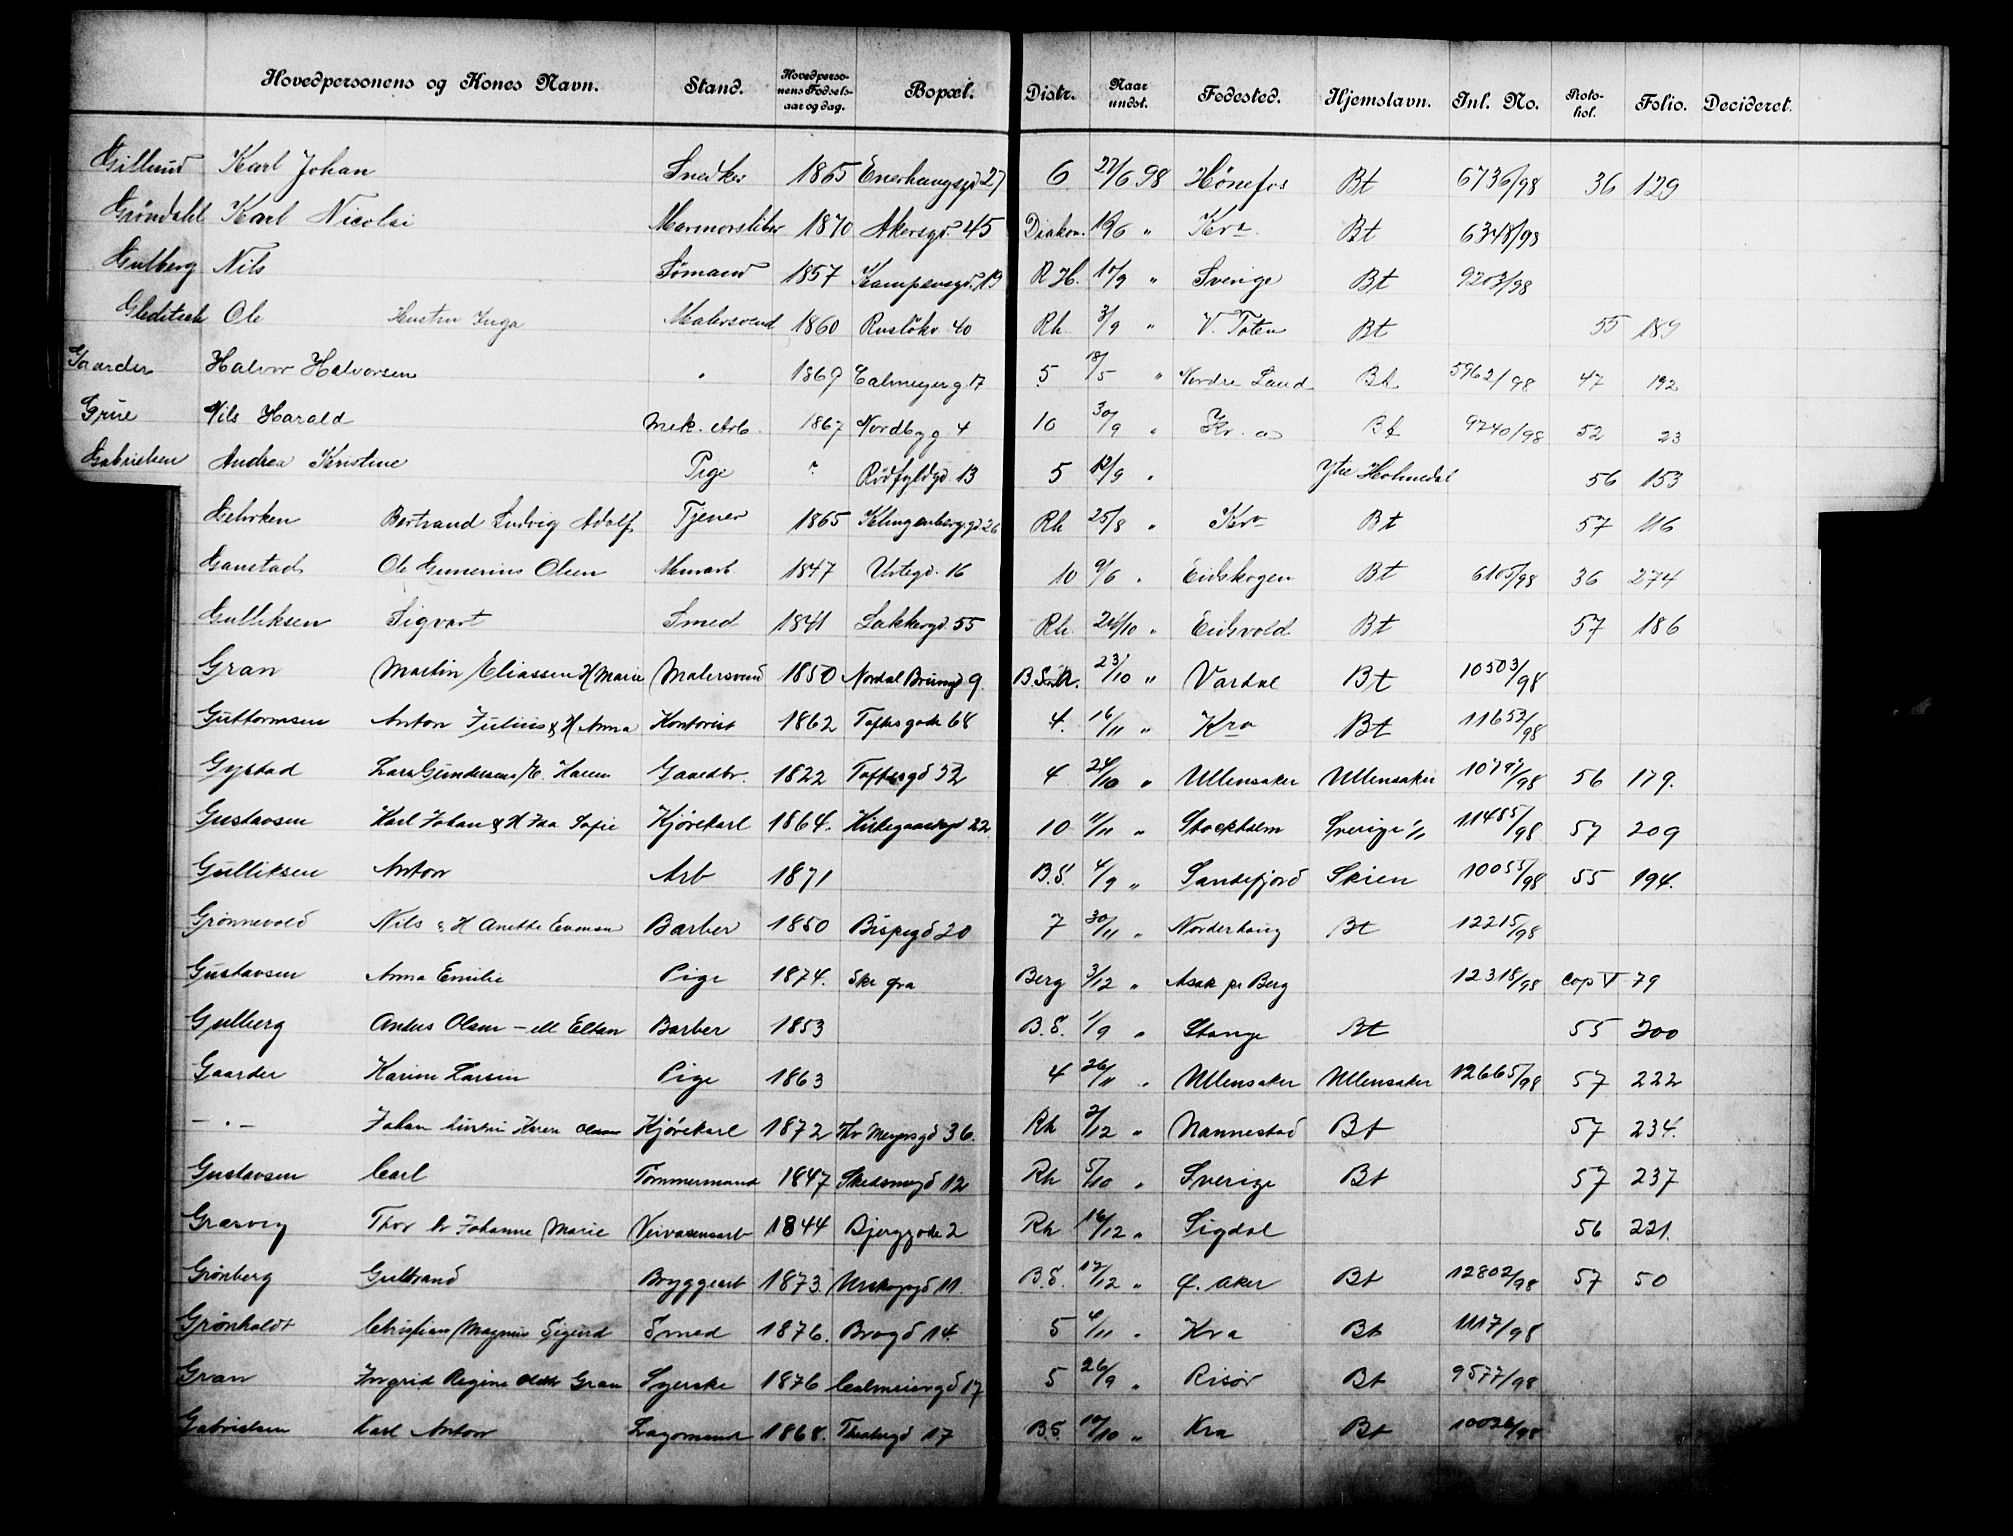 Hovedpersonens og Kones Navn. Stand. Hovedpersonens Fødselsaar og dag. Bopæl. Distr. Naar undst. Fødested. Hjemstavn. Inl. No. Protokol. Folio. Decideret.
Gillund Karl Johan Snedker 1865 Enerhaugsgd 27 6 22/6 98 Hønefos Bt 6736/98 36 129
Grøndahl Karl Nicolai Marmorsliber 1870 Akersgd. 45 Diakon. /6 " Kra. Bt 6348/98
Gulberg Nils Sømand 1857 Kampensgd. 19 R.H. 17/9 " Sverige Bt 9203/98
Gleditsch Ole Hustru Inga Malersvend 1860 Ruseløkv. 40 Rh. 3/9 " V. Toten Bt 55 189
Gaarder Halvor Halvorsen " 1869 Calmeyerg. 17 5 18/5 " Nordre Land Bt 5962/98 47 192
Grue Nils Harald Mek. Arb. 1867 Nordbyg. 4 10 30/9 " Kr.a Bt 9740/98 52 23
Gabrielsen Andrea Kristine Pige ? Rødfyldgd. 13 5 12/9 " Ytre Holmedal 56 153
Gehrken Bertrand Ludvig Adolf Tjener 1865 Klingenberggd 26 Rh 25/8 " Kra Bt 57 116
Ganstad Ole Gunerius Olsen Murarb. 1847 Urtegd. 16 10 9/6 " Eidskogen Bt 6105/98 36 274
Gulliksen Sigvart Smed 1841 Lakkergd. 55 Rh. 24/10 " Eidsvold Bt 57 186
Gran Martin Eliassen H Marie Malersvend 1850 Nordal Brunsgd 9. 23/10 " Vardal Bt 10503/98
Guttormsen Anton Julius & H Anna Kontorist 1862 Toftesgade 68 4. 16/11 " Kra Bt 11652/98
Gystad Lars Gundersen H. Karen Gaardbr. 1822 Toftesgd 52 4 24/10 " Ullensaker Ullensaker 10797/98 56 179.
Gustavsen Karl Johan & H Ida Sofie Kjørekarl 1864. Kirkegaardsgd 22. 10 11/11 " Stockholm Sverige 11455/98 57 209
Gulliksen Anton Arb 1871 B.S. 4/9 " Sandefjord Skien 10055/98 55 194.
Grønnevold Nils & H Anette Evensen Barber 1850 Bispegd 20 7 30/11 " Norderhaug Bt 12215/98
Gustavsen Anna Emilie Pige 1874. Berg 3/12 " Asak pr Berg 12318/98 Cop V 79
Gulberg Anders Olsen - ell Eltan Barber 1853 B.S. 1/9 " Stange Bt 55 200
Gaarder Karine Larsen Pige 1863 4 26/11 " Ullensaker Ullensaker 12665/98 57 222
- " - Johan hustru Karen Olsen Kjørekarl 1872 Thv Meyersgd 36. Rh 2/12 " Nannestad Bt 57 234.
Gustavsen Carl Tømmermand 1847 Skedsmogd 12 Rh 5/10 " Sverige Bt 57 237
Græsvig Thor h. Johanne Marie Veivæsensarb 1844 Bjerggade 2 Rh 16/12 " Sigdal 56 221.
Grønberg Gulbrand Bryggearb 1873. Urskoggd 11. B.S. 12/12 " Ø. Aker Bt 12802/98 57 50
Grønholdt Christian Magnus Sigurd Smed 1876. Brogd 14. 5 4/11 " Kra Bt 1117/98
Gran Ingrid Regine Gran Syerske 1876 Calmeiergd 17 5 26/9 " Risør Bt 9577/98
Gabrielsen Karl Anton Lagermand 1868. Theatergd 17 B.S. 10/10 " Kra Bt 10026/98